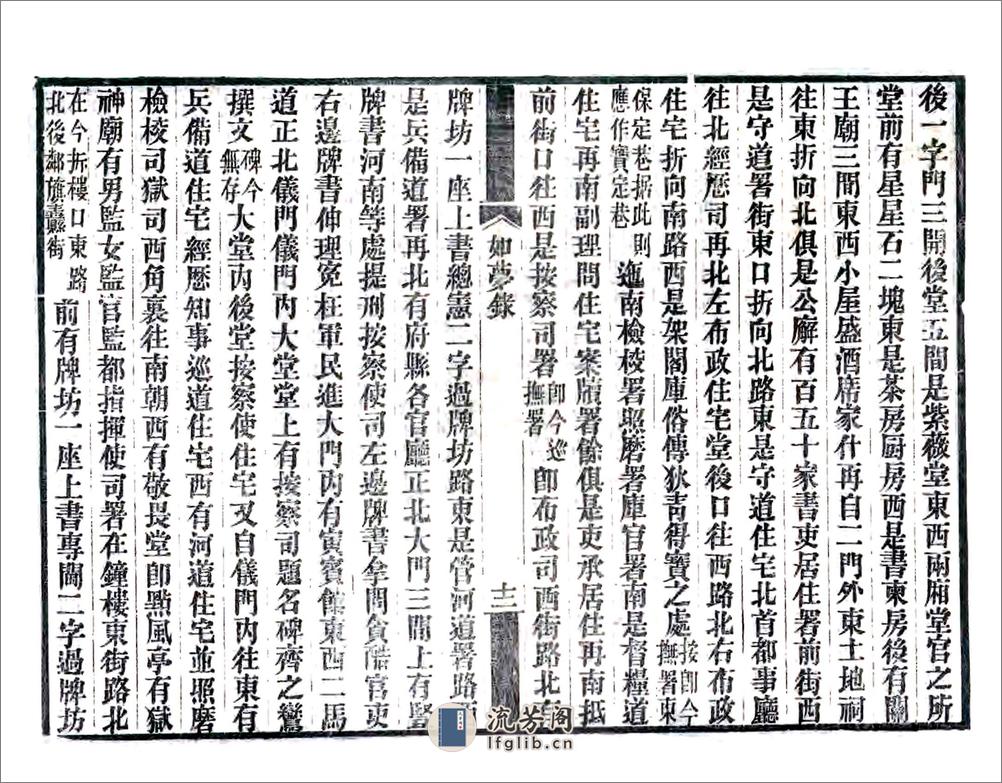 後一字門三開後堂五間是紫薇堂東西兩廂堂官之所
堂前有星星石二塊東是茶房厨房西是書柬房後有關
王廟三間東西小屋盛酒席家什再自二門外東土地祠
往東折向北俱是公廨有百五十家書吏居住署前街西
是守道署街東口折向北路東是守道住宅北首都事廳
往北經歷司再北左布政住宅堂後口往西路北右布政
住宅折向南路西是架閣庫俗傳狄靑得寶之處按卽今撫署東
保定巷据此則應作寶定巷迤南檢校署照磨署庫官署南是督糧道
住宅再南副理問住宅案牘署餘俱是吏承居住再南抵
前街口往西是按察司署卽今巡撫署卽布政司西街路北
如夢錄
十二
牌坊一座上書總憲二字過牌坊路東是管河道署路
是兵備道署再北有府縣各官廳正北大門三間上有豎
牌書河南等處提刑按察使司左邊牌書拿問貪酷官吏
右邊牌書伸理冤枉軍民進大門內有寅賓館東西二馬
道正北儀門儀門內大堂堂上有按察司題名碑齊之鸞
撰文碑今無存大堂內後堂按察使住宅又自儀門內往東有
兵備道住宅經歷知事巡道住宅西有河道住宅並照磨
檢校司獄司西角裏往南朝西有敬畏堂卽點風亭有獄
神廟有男監女監官監都指揮使司署在鐘樓東街路北
在今拆樓口東路北後鄰旗纛街前有牌坊一座上書專閫二字過牌坊
流芳阁
lfglib.cn